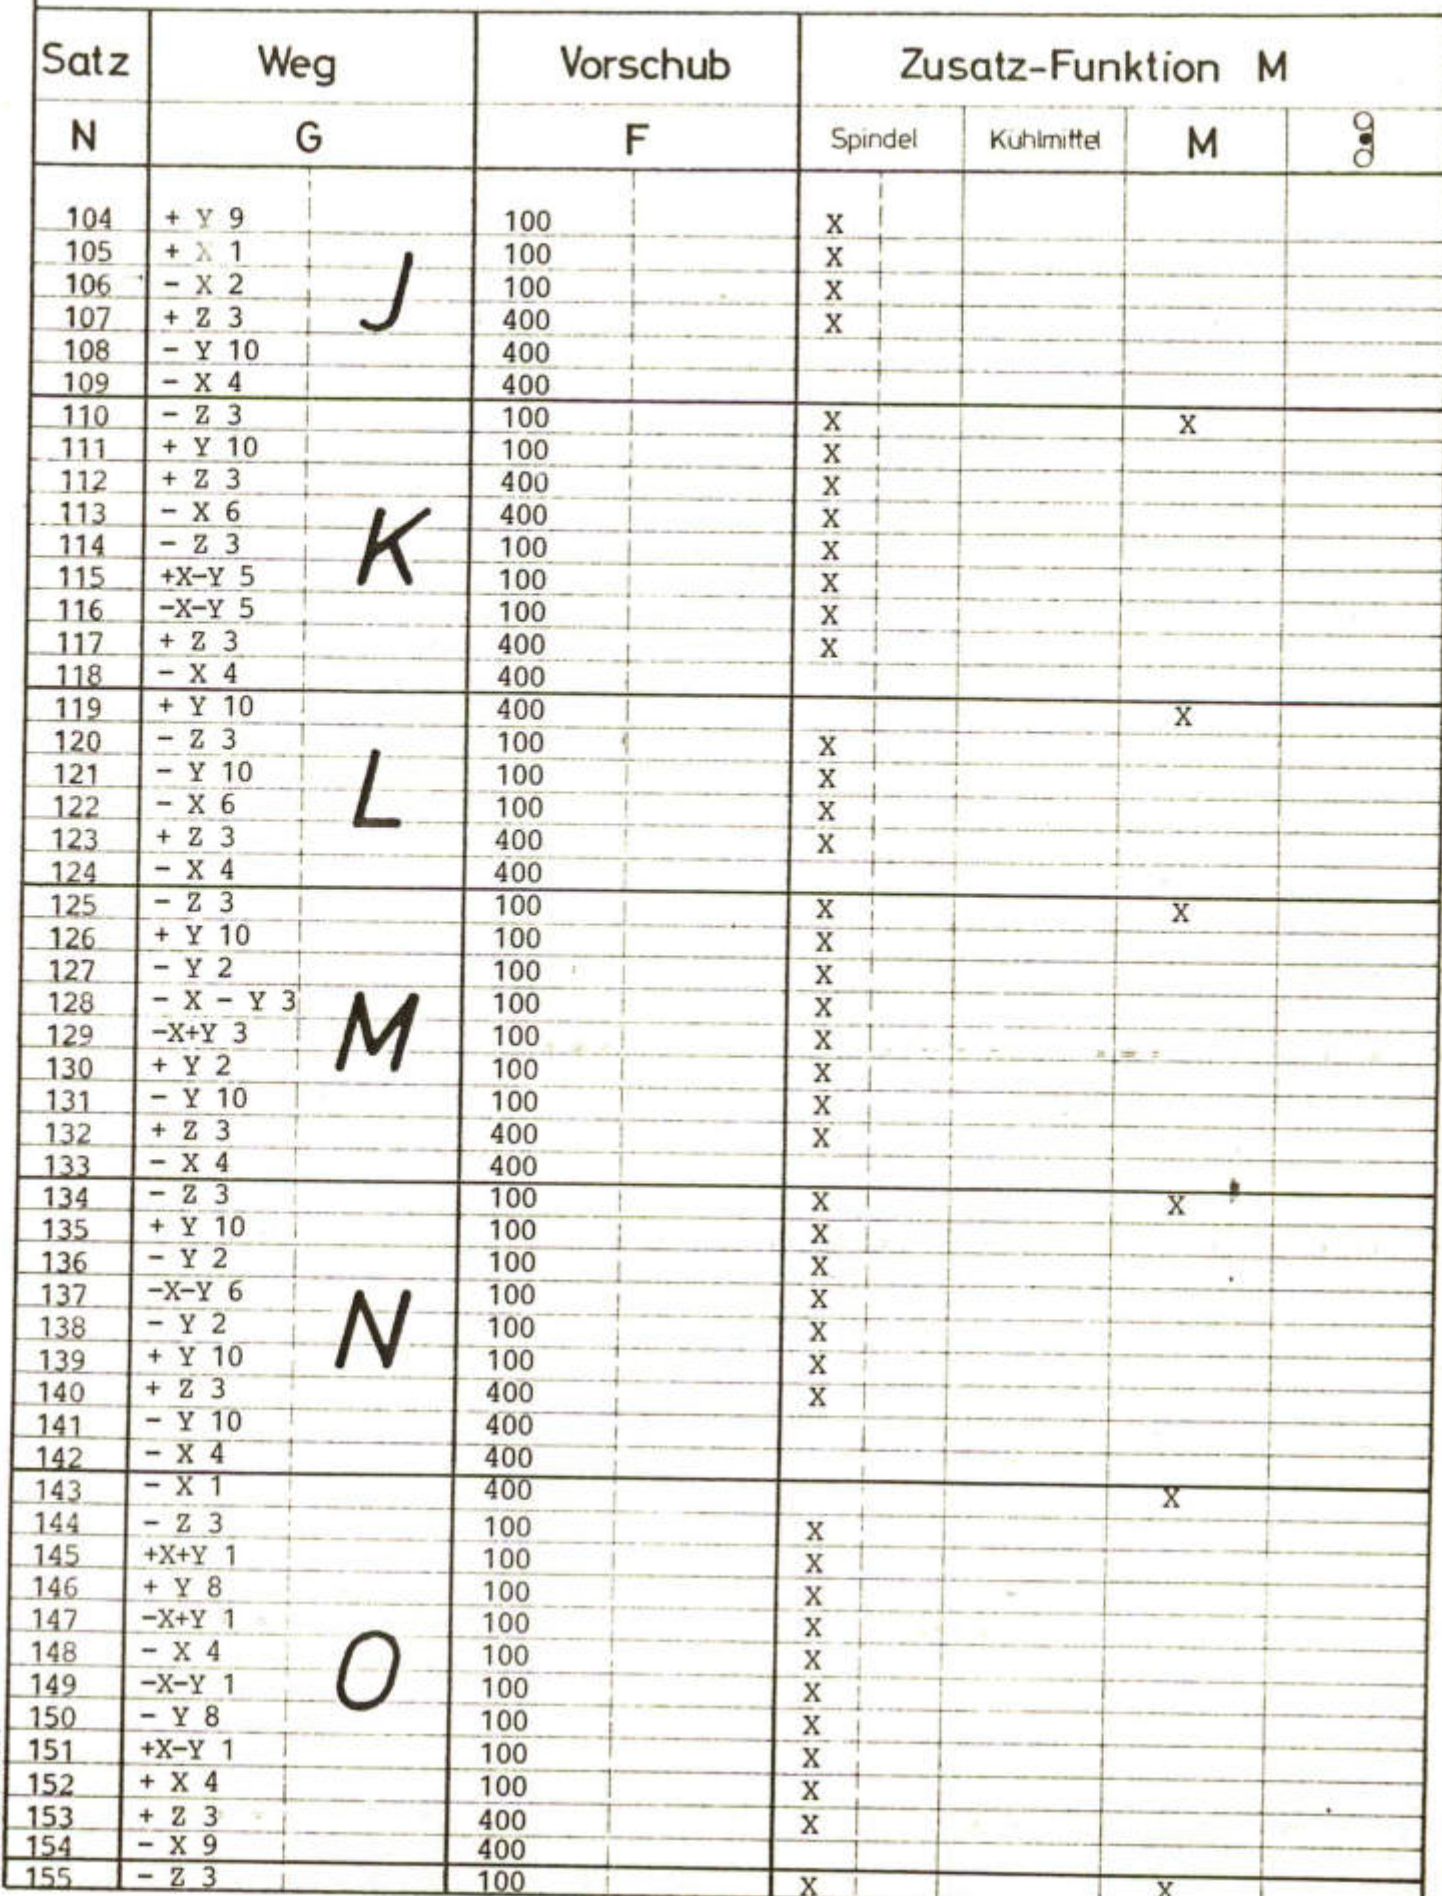 Satz Weg Vorschub Zusatz-Funktion M
N G F Spindel Kühlmittel M
104 + Y 9 100 X
105 + X 1 100 X
106 - X 2 100 X
107 + Z 3 400 X
J
108 - Y 10 400
109 - X 4 400
110 - Z 3 100 X X
111 + Y 10 100 X
112 + Z 3 400 X
113 - X 6 400 X
114 - Z 3 100 X
K
115 +X-Y 5 100 X
116 -X-Y 5 100 X
117 + Z 3 400 X
118 - X 4 400
119 + Y 10 400 X
120 - Z 3 100 X
121 - Y 10 100 X
L
122 - X 6 100 X
123 + Z 3 400 X
124 - X 4 400
125 - Z 3 100 X X
126 + Y 10 100 X
127 - Y 2 100 X
128 - X - Y 3 100 X
M
129 -X+Y 3 100 X
130 + Y 2 100 X
131 - Y 10 100 X
132 + Z 3 400 X
133 - X 4 400
134 - Z 3 100 X X
135 + Y 10 100 X
136 - Y 2 100 X
137 -X-Y 6 100 X
N
138 - Y 2 100 X
139 + Y 10 100 X
140 + Z 3 400 X
141 - Y 10 400
142 - X 4 400
143 - X 1 400 X
144 - Z 3 100 X
145 +X+Y 1 100 X
146 + Y 8 100 X
147 -X+Y 1 100 X
148 - X 4 100 X
O
149 -X-Y 1 100 X
150 - Y 8 100 X
151 +X-Y 1 100 X
152 + X 4 100 X
153 + Z 3 400 X
154 - X 9 400
155 - Z 3 100 X X